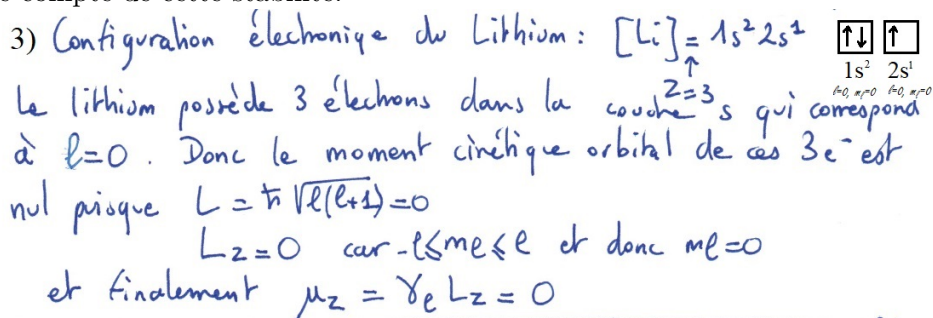 compte de cette stabilité.
3) Configuration électronique du Lithium : [Li] = 1s² 2s¹ ↑↓ ↑
↑ 1s² 2s¹
Z=3 ℓ=0, mℓ=0 ℓ=0, mℓ=0
Le lithium possède 3 électrons dans la couche s qui correspond
à ℓ=0. Donc le moment cinétique orbital de ces 3e⁻ est
nul puisque L = ħ √ℓ(ℓ+1) = 0
Lz = 0 car -ℓ≤mℓ≤ℓ et donc mℓ=0
et finalement μz = γe Lz = 0